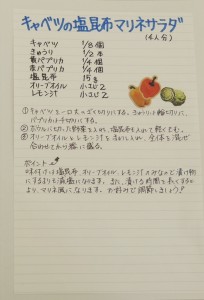 キャベツの塩昆布マリネサラダ
(4人分)
キャベツ 1/8個
きゅうり 1/2本
黄パプリカ 1/4個
赤パプリカ 1/4個
塩昆布 15g
オリーブオイル 小さじ2
レモン汁 小さじ2
①キャベツを一口大のざく切りにする。きゅうりは輪切りに、
パプリカは千切りにする。
②ボウルに切った野菜を入れ、塩昆布を入れて軽くもむ。
③オリーブオイルとレモン汁を
全体を混ぜ
合わせて
器に盛る。
ポイント
味付けは塩昆布、オリーブオイル、レモン汁のみなので漬け物
にするよりも減塩になります。また、漬ける時間を長くすると
より、マリネ風になります。お好みで調節しましょう♪